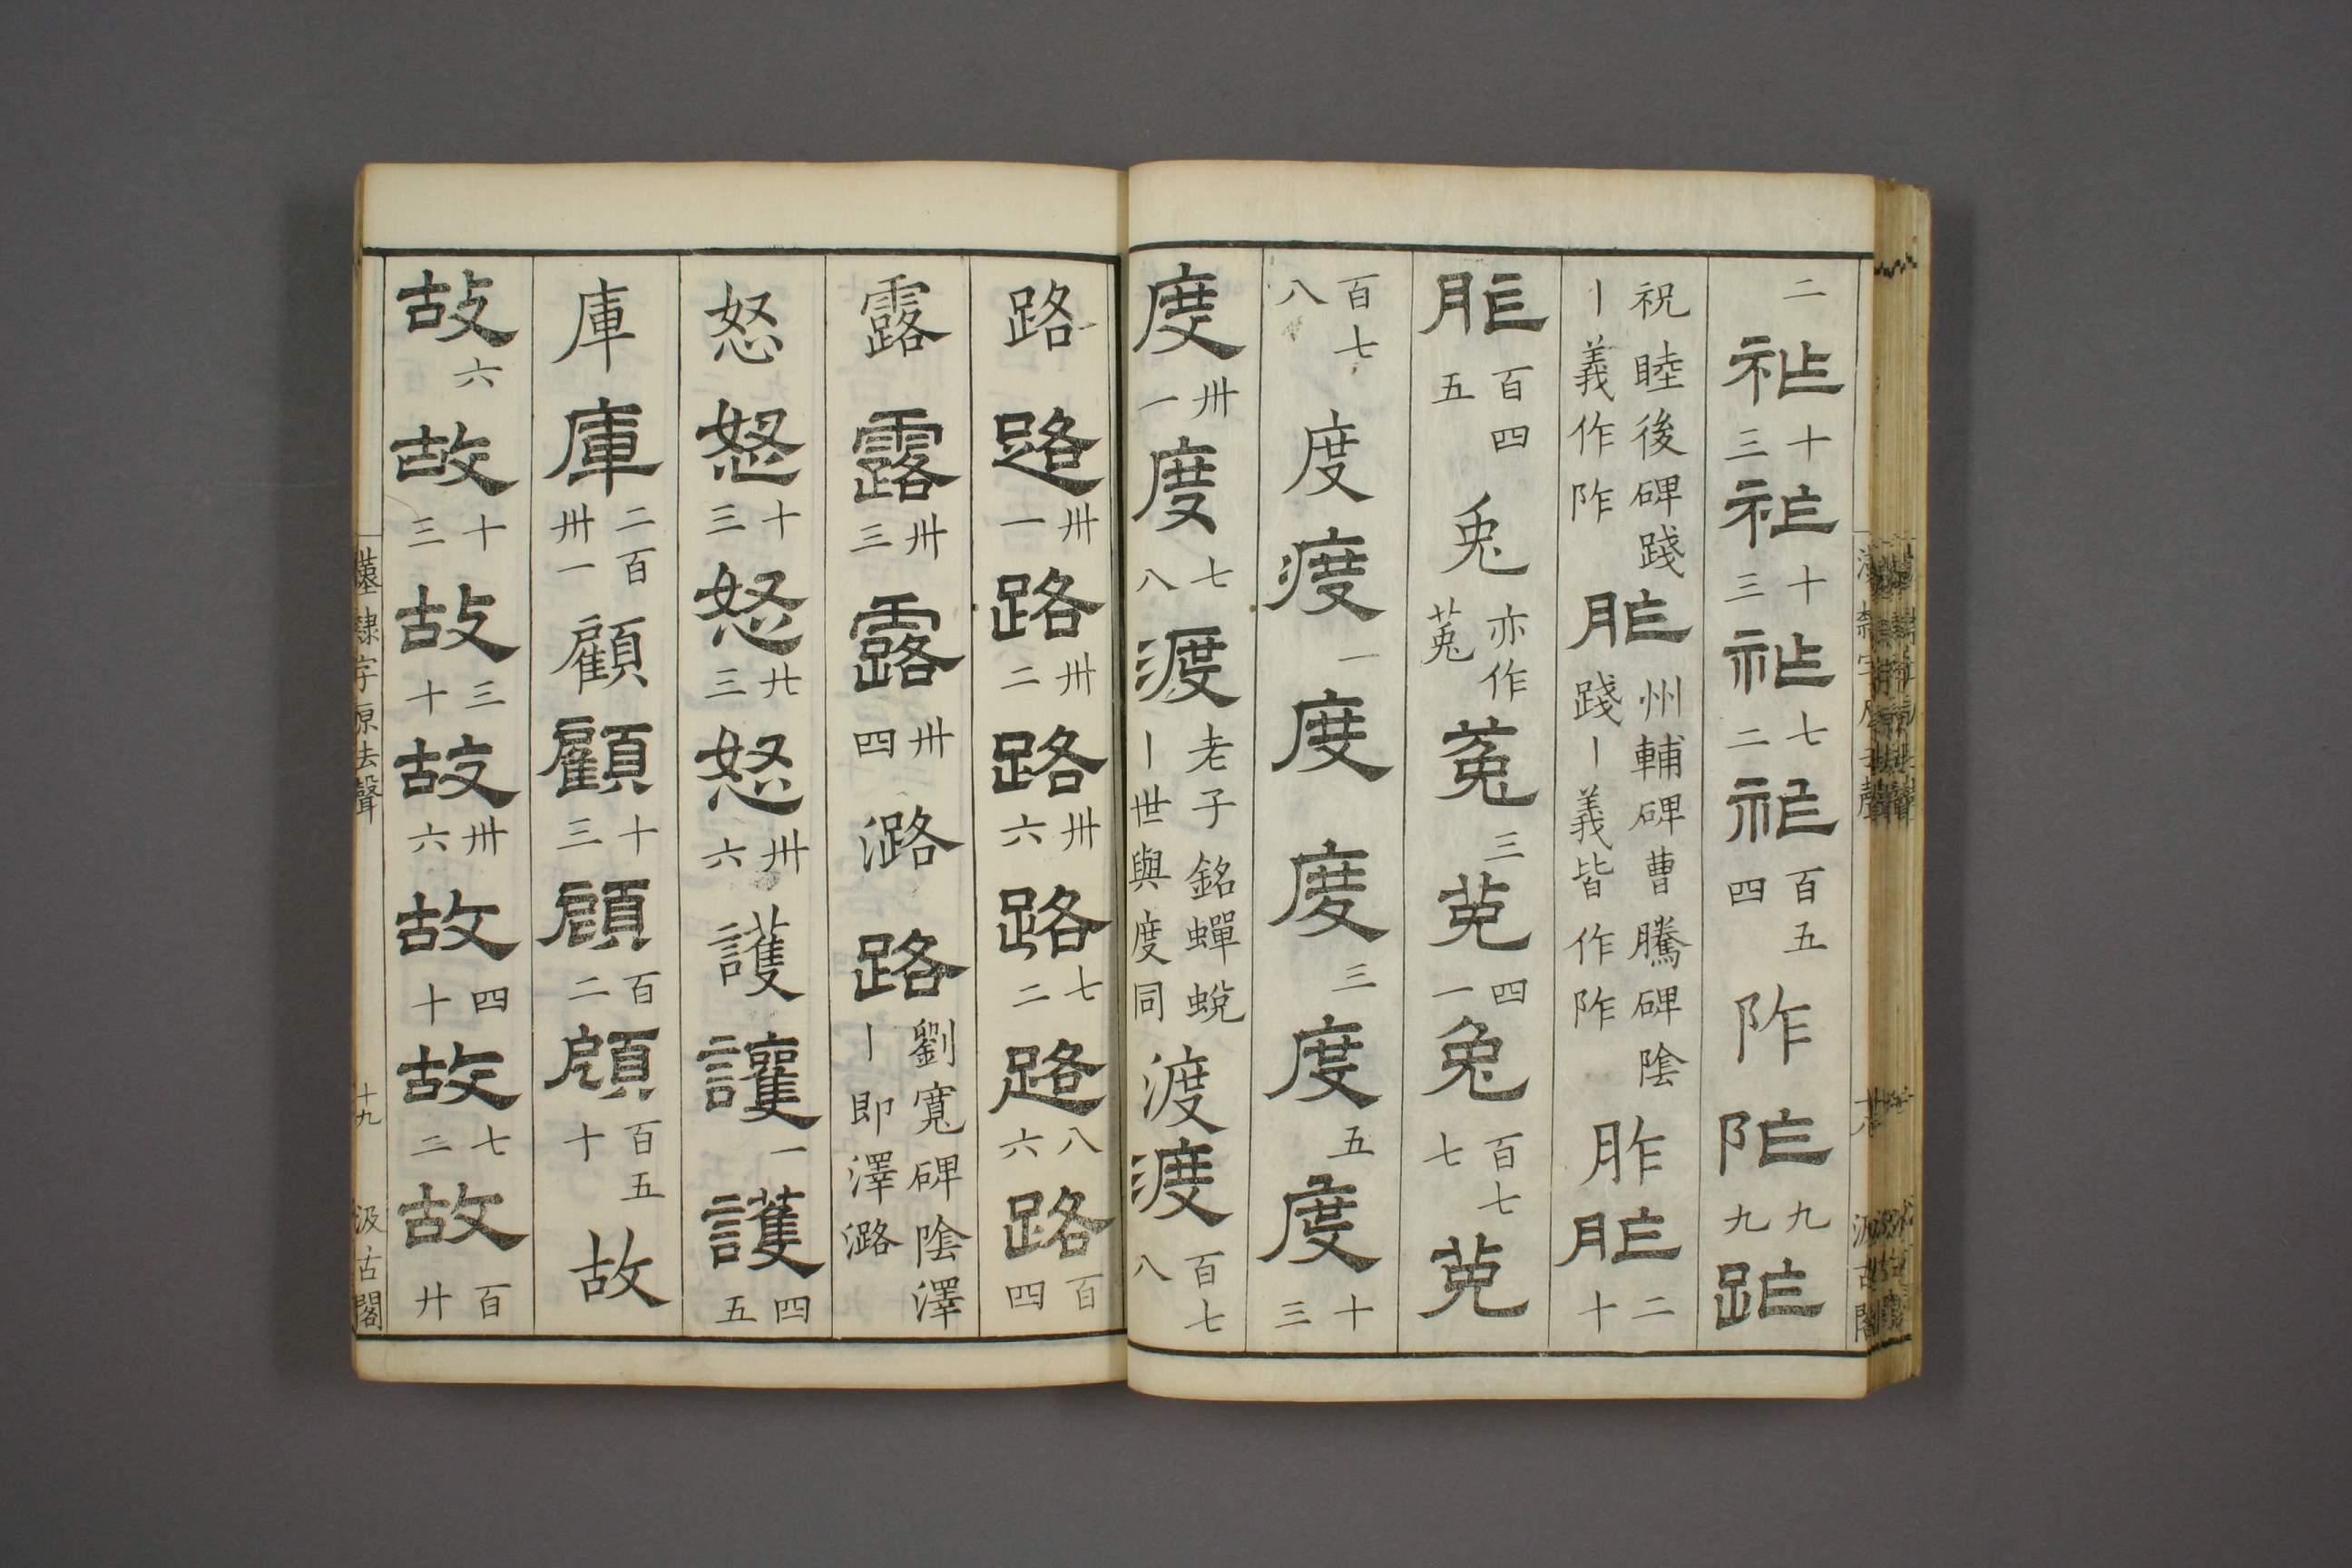 二祚十三祚十三祚七二祚百五四阼阼九九阼
祝睦後碑踐丨義作阼胙州輔碑曹騰碑陰踐丨義皆作阼胙胙二十
胙百四五兎亦作菟菟三菟四一兎百七七菟
百七八度度一度度三度五度十三
度卅一度七八渡老子銘蟬蛻丨世與度同渡渡百七八
路路卅一路卅二路卅六路七二路八六路百四
露露卅三露卅四潞路劉寬碑陰澤丨即澤潞
怒怒十三怒廿三怒卅六護護一護四五
庫庫二百卅一顧顧十三顧百二顧百五十故
故六故十三故三十故卅六故四十故七二故百廿
漢隸字原去聲 十九 汲古閣